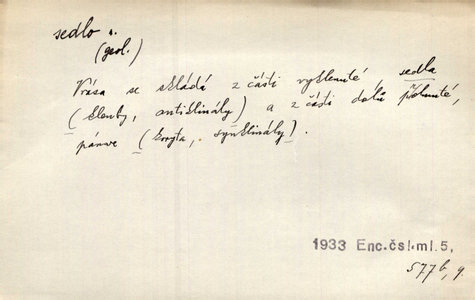 sedlo s.
(geol.)
Vrása se skládá z části vyklenuté, sedla
(klenby, antiklinály) a z části dolů prohnuté,
pánve (koryta, synklinály).
1933 Enc.čsl.ml.5,
577b, 9.